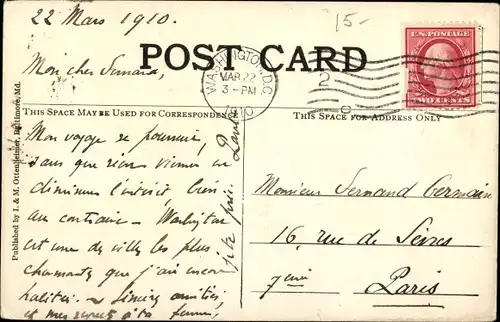 22 Mars 1910.
15-
POST CARD
WASHINGTON, D.C.
MAR 22
3-PM
1910
2
U.S. POSTAGE
TWO CENTS
Mon cher Fernand,
THIS SPACE MAY BE USED FOR CORRESPONDENCE
THIS SPACE FOR ADDRESS ONLY
Published by I. & M. Ottenheimer, Baltimore, Md.
Mon voyage se poursuit,
sans que rien vienne en
diminuer l'intérêt, bien
au contraire - Washington
est une des villes les plus
charmantes que j'aie encore
habitées. - Sincères amitiés,
et mes à ta femme,
Monsieur Fernand Germain
16, rue de Sèvres
7ème
Paris